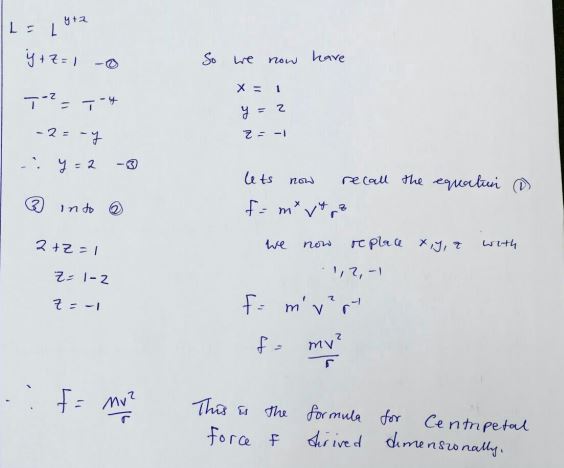 L = L^{y+z}
y + z = 1 - ②
T^{-2} = T^{-y}
-2 = -y
∴ y = 2 - ③
③ into ②
2 + z = 1
z = 1 - 2
z = -1
So we now have
x = 1
y = 2
z = -1
lets now recall the equation ①
f = m^x v^y r^z
we now replace x, y, z with
1, 2, -1
f = m^1 v^2 r^{-1}
f = mv²/r
∴ f = mv²/r
This is the formula for Centripetal
force f dirived dimensionally.